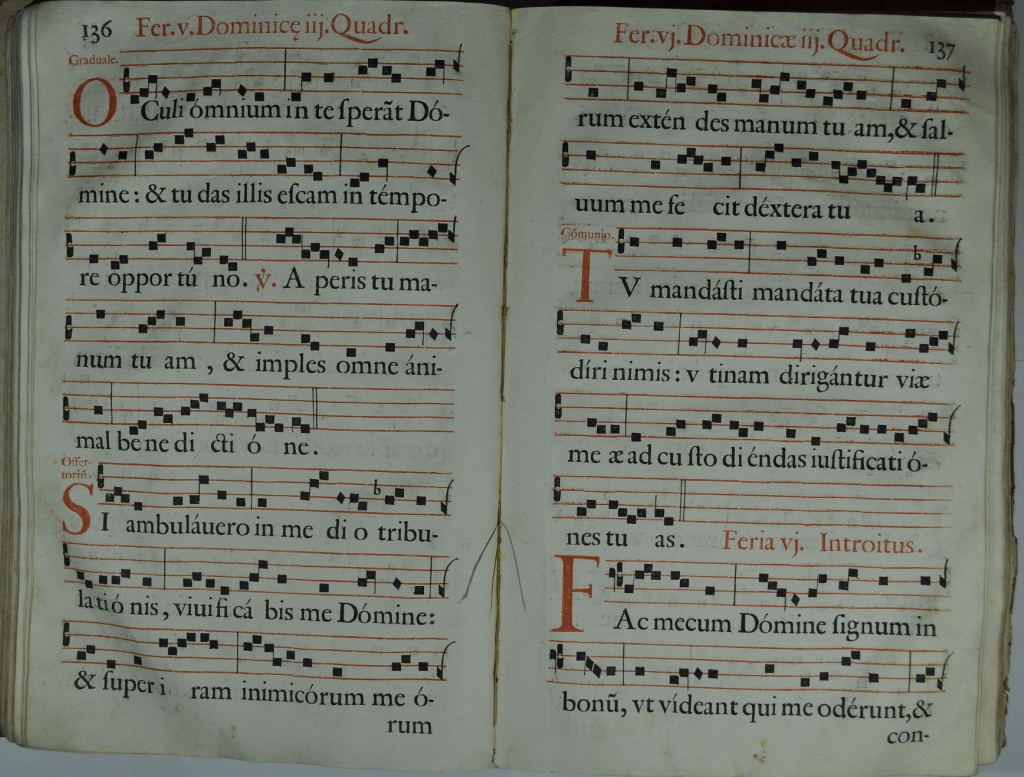 136 Fer.v.Dominicę iij.Quadr.
Graduale.
OCuli ómnium in te ſperãt Dó-
mine: & tu das illis eſcam in témpo-
re oppor tú no. ℣. A peris tu ma-
num tu am , & imples omne áni-
mal be ne di cti ó ne.
Offer-
toriũ.
SI ambuláuero in me di o tribu-
latió nis, viuifi cá bis me Dómine:
& ſuper i ram inimicórum me ó-
rum
Fer.vj.Dominicæ iij.Quadr. 137
rum extén des manum tu am,& ſal-
uum me fe cit déxtera tu a.
Cõmunio.
TV mandáſti mandáta tua cuſtó-
díri nimis: v tinam dirigántur viæ
me æ ad cu ſto di éndas iuſtificati ó-
nes tu as. Feria vj. Introitus.
FAc mecum Dómine ſignum in
bonũ, vt vídeant qui me odérunt,&
con-